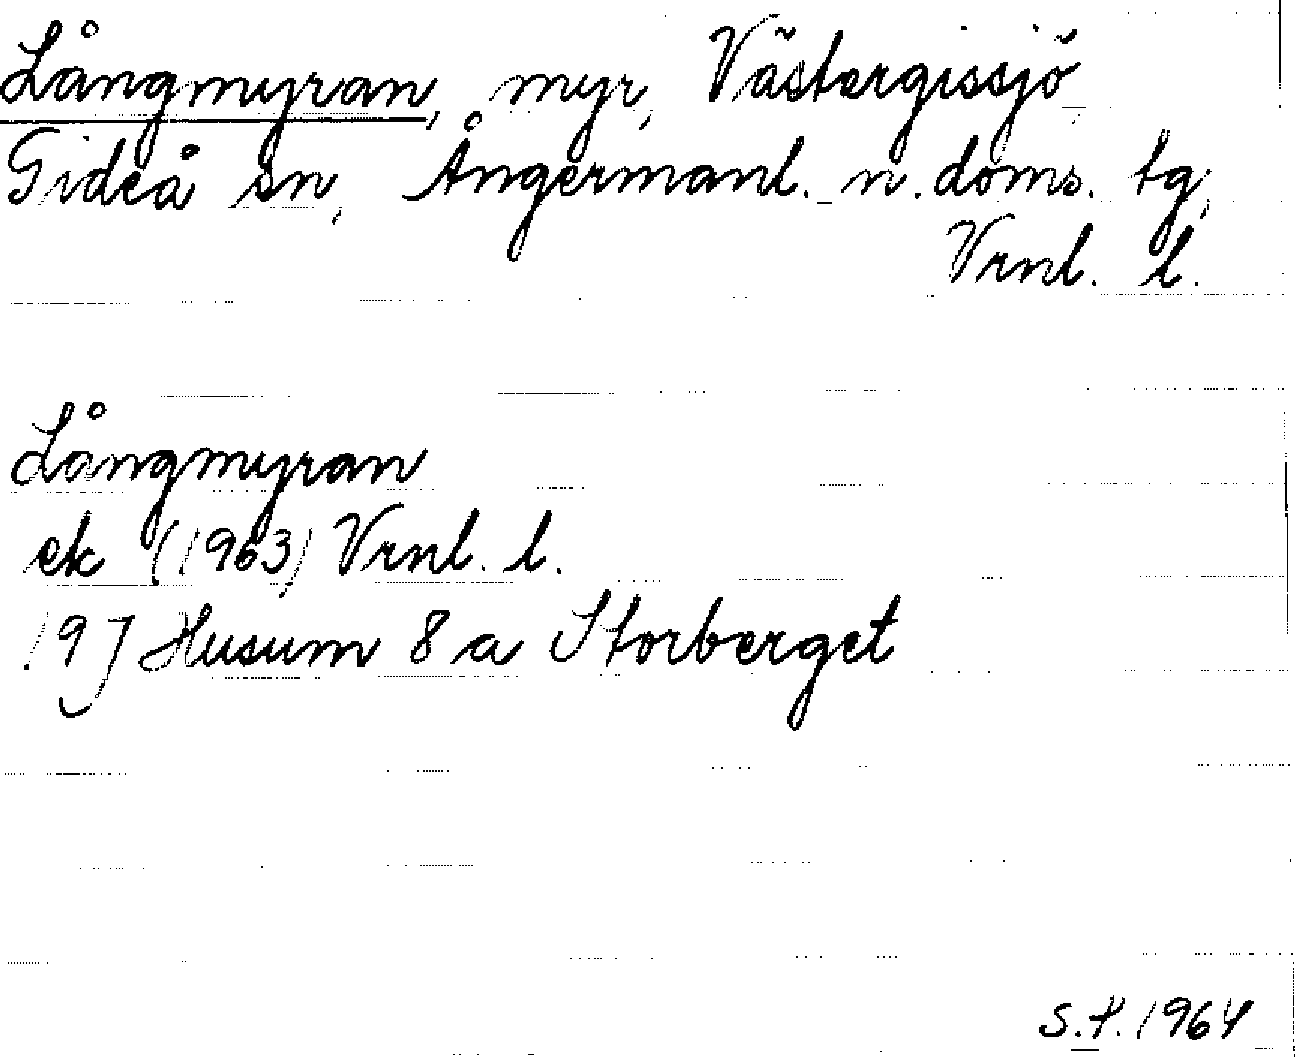 Långmyran, myr, Västergissjö
Gideå sn, Ångermanl. n. doms. tg,
Vrnl. l.
Långmyran
ek (1963) Vrnl. l.
19J Husum 8 a Storberget
S.H. 1964